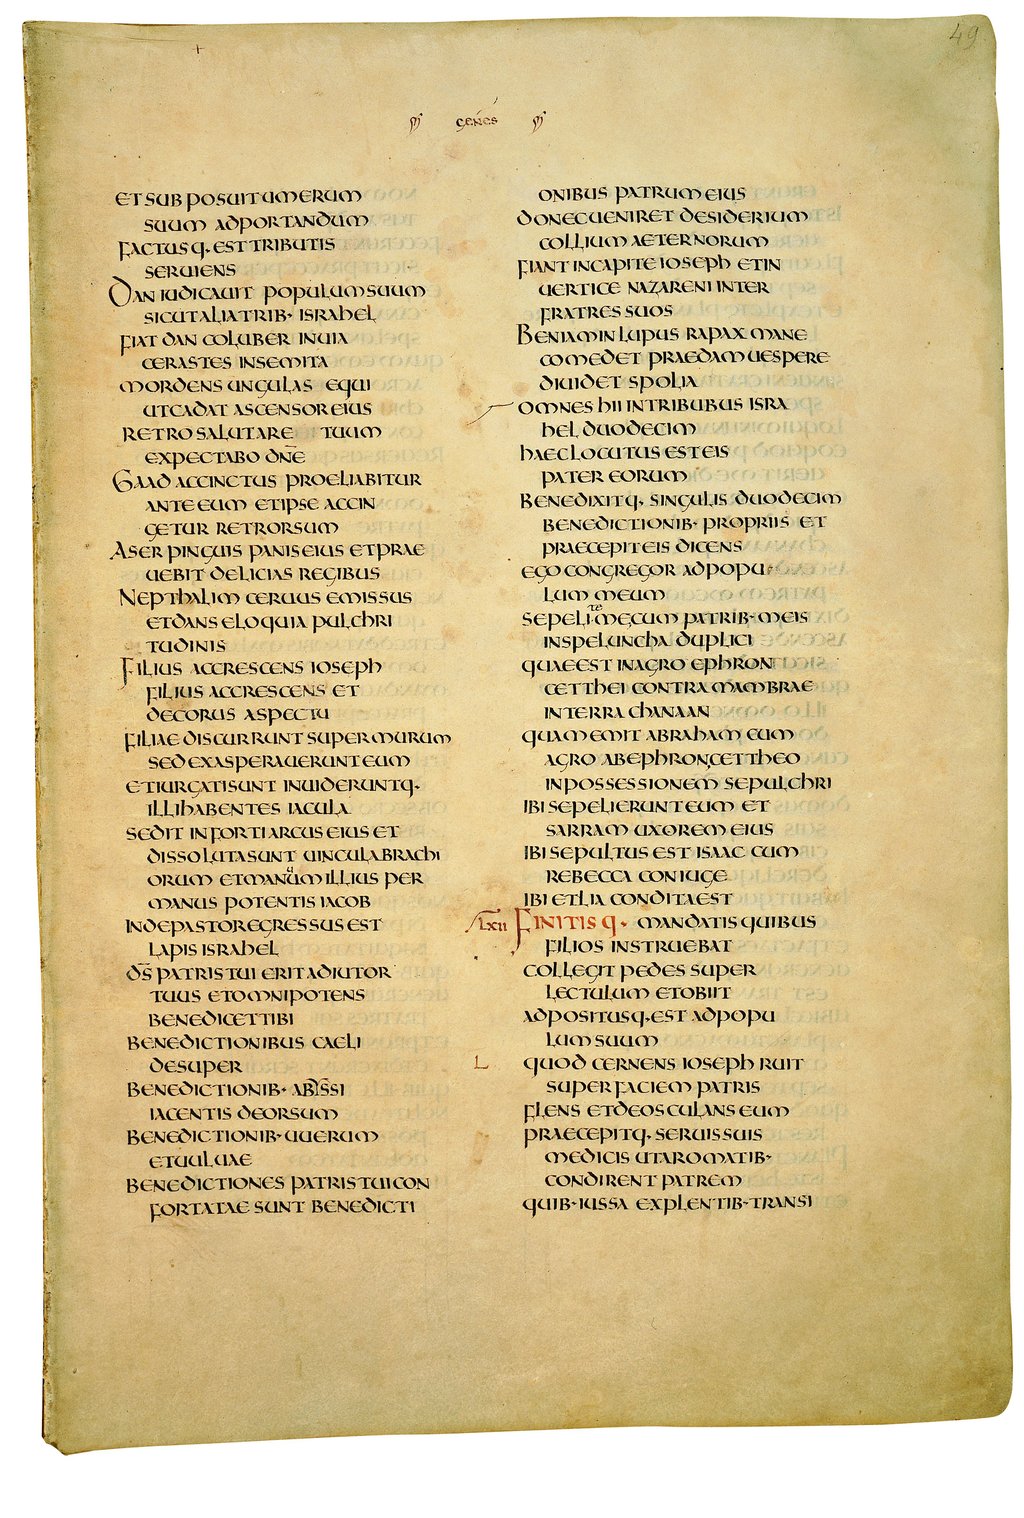 49
genes
ET SUB POSUIT UMERUM
SUUM AD PORTANDUM
FACTUS Q· EST TRIBUTIS
SERUIENS
DAN IUDICAUIT POPULUM SUUM
SICUT ALIA TRIB· ISRAHEL
FIAT DAN COLUBER IN UIA
CERASTES IN SEMITA
MORDENS UNGULAS EQUI
UT CADAT ASCENSOR EIUS
RETRO SALUTARE TUUM
EXPECTABO DN̄E
GAAD ACCINCTUS PROELIABITUR
ANTE EUM ET IPSE ACCIN
GETUR RETRORSUM
ASER PINGUIS PANIS EIUS ET PRAE
UEBIT DELICIAS REGIBUS
NEPTHALIM CERUUS EMISSUS
ET DANS ELOQUIA PULCHRI
TUDINIS
FILIUS ACCRESCENS IOSEPH
FILIUS ACCRESCENS ET
DECORUS ASPECTU
FILIAE DISCURRUNT SUPER MURUM
SED EXASPERAUERUNT EUM
ET IURGATI SUNT INUIDERUNTQ·
ILLI HABENTES IACULA
SEDIT IN FORTI ARCUS EIUS ET
DISSOLUTA SUNT UINCULA BRACHI
ORUM ET MANUUM ILLIUS PER
MANUS POTENTIS IACOB
INDE PASTOR EGRESSUS EST
LAPIS ISRAHEL
D̄S PATRIS TUI ERIT ADIUTOR
TUUS ET OMNIPOTENS
BENEDICET TIBI
BENEDICTIONIBUS CAELI
DESUPER
BENEDICTIONIB· ABISSI
IACENTIS DEORSUM
BENEDICTIONIB· UUERUM
ET UULUAE
BENEDICTIONES PATRIS TUI CON
FORTATAE SUNT BENEDICTI
ONIBUS PATRUM EIUS
DONEC UENIRET DESIDERIUM
COLLIUM AETERNORUM
FIANT IN CAPITE IOSEPH ET IN
UERTICE NAZARENI INTER
FRATRES SUOS
BENIAMIN LUPUS RAPAX MANE
COMEDET PRAEDAM UESPERE
DIUIDET SPOLIA
OMNES HII IN TRIBUBUS ISRA
HEL DUODECIM
HAEC LOCUTUS EST EIS
PATER EORUM
BENEDIXITQ· SINGULIS DUODECIM
BENEDICTIONIB· PROPRIIS ET
PRAECEPIT EIS DICENS
EGO CONGREGOR AD POPU
LUM MEUM
SEPELITE MECUM PATRIB· MEIS
IN SPELUNCHA DUPLICI
QUAE EST IN AGRO EPHRON
CETTHEI CONTRA MAMBRAE
IN TERRA CHANAAN
QUAM EMIT ABRAHAM CUM
AGRO AB EPHRON CETTHEO
IN POSSESSIONEM SEPULCHRI
IBI SEPELIERUNT EUM ET
SARRAM UXOREM EIUS
IBI SEPULTUS EST ISAAC CUM
REBECCA CONIUGE
IBI ET LIA CONDITA EST
LXII FINITIS Q· MANDATIS QUIBUS
FILIOS INSTRUEBAT
COLLEGIT PEDES SUPER
LECTULUM ET OBIIT
ADPOSITUSQ· EST AD POPU
LUM SUUM
QUOD CERNENS IOSEPH RUIT
SUPER FACIEM PATRIS
FLENS ET DEOSCULANS EUM
PRAECEPITQ· SERUIS SUIS
MEDICIS UT AROMATIB·
CONDIRENT PATREM
QUIB· IUSSA EXPLENTIB· TRANSI